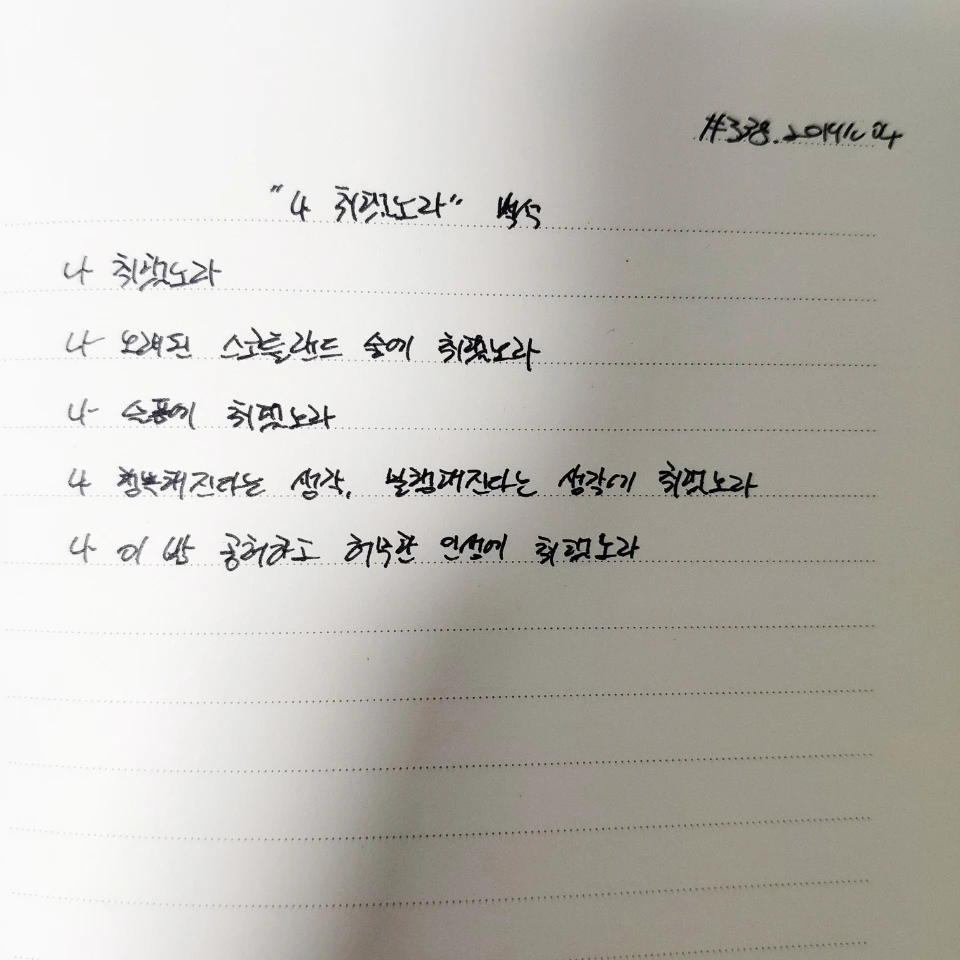 #338. 20191204
"나 취했노라" 백석
나 취했노라
나 오래된 스코틀랜드 술에 취했노라
나 슬픔에 취했노라
나 행복해진다는 생각, 불행해진다는 생각에 취했노라
나 이 밤 공허하고 허무한 인생에 취했노라